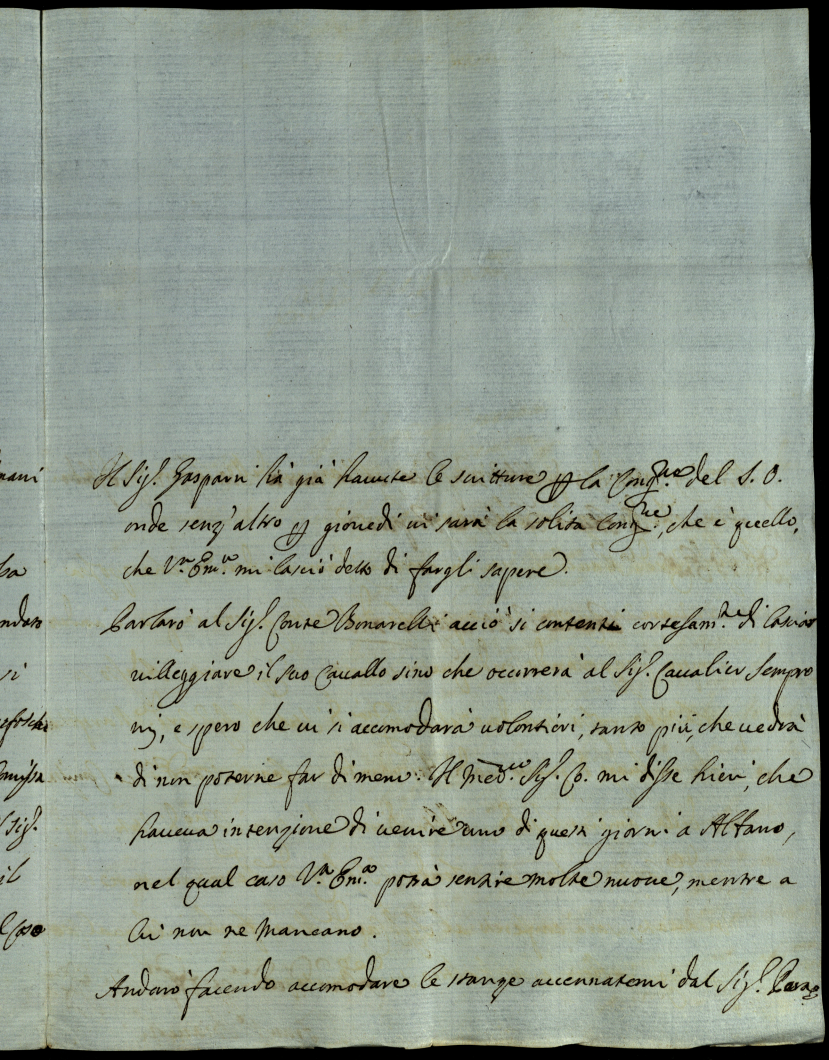 Il Sig.r Gasparri hà già havute le scritture per la Cong.ne del S. O.
onde senz'altro per giovedì vi sarà la solita Cong.ne, che è quello,
che V.ra Em.za mi lasciò detto di fargli sapere.
Parlarò al Sig.r Conte Bonarelli acciò si contenti cortesam.te di lasciar
villeggiare il suo Cavallo sino che occorrerà al Sig.r Cavalier Sempro
nij, e spero che vi si accomodarà volontieri, tanto più, che vedrà
di non poterne far di meno. Il med.mo Sig.r Co. mi disse hieri, che
haveva intenzione di venire uno di questi giorni a Albano,
nel qual caso V.ra Em.za potrà sentire molte nuove, mentre a
lui non ne mancano.
Andarò facendo accomodare le stanze accennatemi dal Sig.r